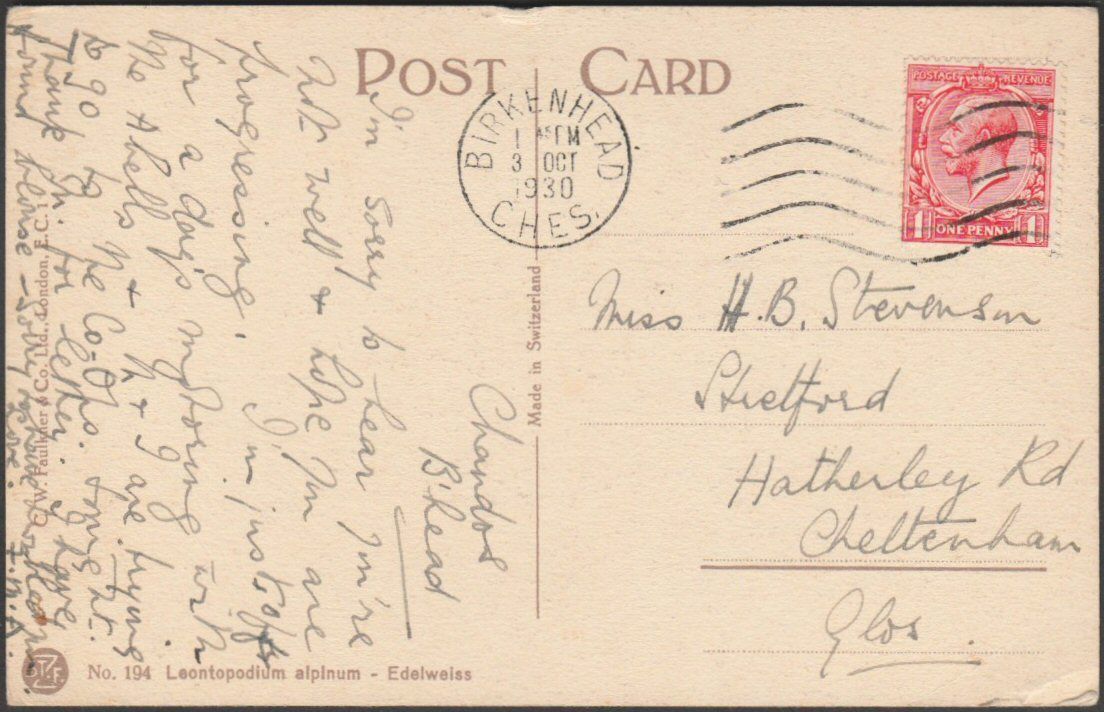 POST CARD
BIRKENHEAD
3 OCT
1930
CHES.
POSTAGE REVENUE
1 ONE PENNY 1
Miss H.B. Stevenson
Stretford
Hatherley Rd
Cheltenham
Glos
Chandos
B'head
I'm sorry to hear you're
not well & hope you are
progressing. I'm just off
for a day's motoring with
the Abells & & I are trying
to go to the Co-Op tonight.
Thank you for letter. I have
found blouse
Love.
Made in Switzerland
C.W. Faulkner & Co. Ltd., London, E.C.1.
No. 194 Leontopodium alpinum - Edelweiss